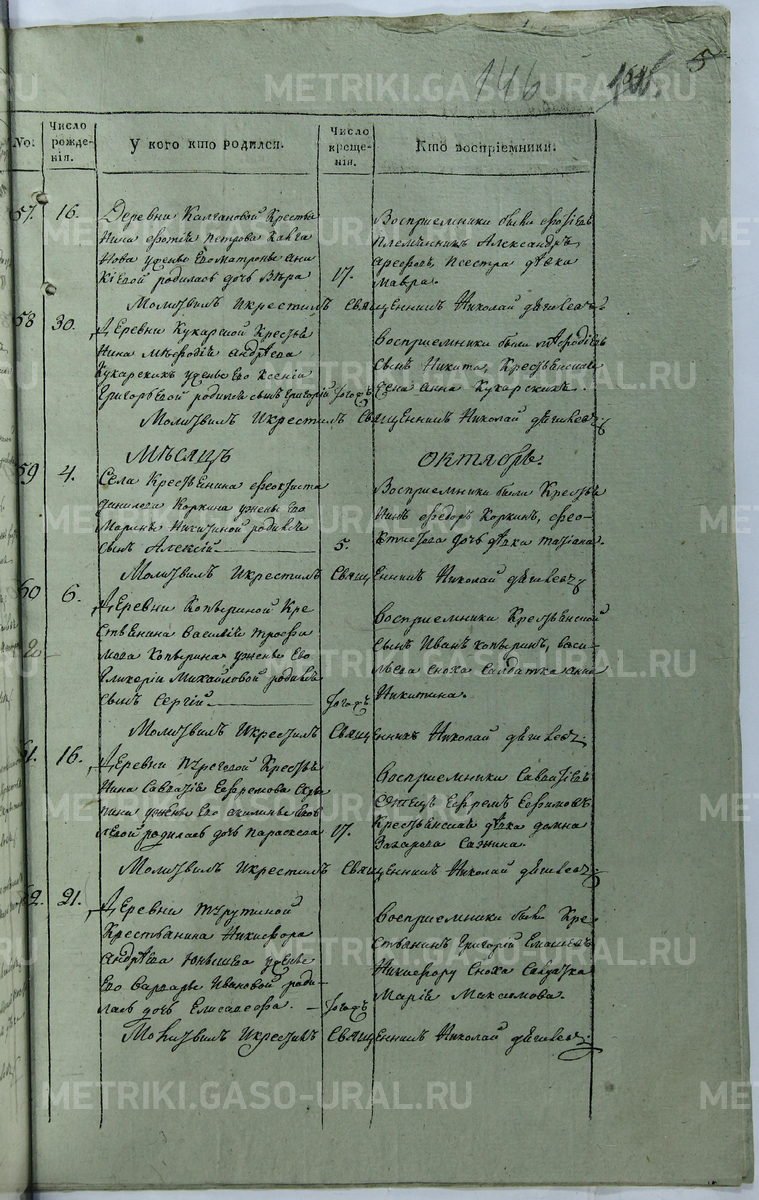 146.
5
No:
Число рожденія.
У кого кто родился.
Число крещенія.
Кто воспріемники.
57.
16.
Деревни Калгановой Кресть
нина Фотія Петрова Калга
нова ужены Его матроны ани
кіевой родилась дочь Вѣра
17.
Воспріемники были Фотіевъ
племянникъ Александръ
сестра дѣвка
Мавра.
Молитвилъ Икрестилъ Священникъ Николай
58
30.
Деревни Кукарской Крестья
нина Мѳеодія Андрѣева
Кукарскихъ ужены Его Ксеніи
Григорьевой родился сынъ Григорій
тогожъ
Воспріемники были Меѳодіевъ
Сынъ Никита, Крестьянская
жена Анна Кукарскихъ.
Молитвилъ Икрестилъ Священникъ Николай
МѢСЯЦЪ
ОКТЯБРЬ.
59
4.
Села Крестьянина Феоктиста
данилова Коркина ужены Его
Марины Никитиной родился
сынъ Алексій
5.
Воспріемники были Крестья
нинъ Федоръ Коркинъ, Фео-
ктистова дочь дѣвка татіана.
Молитвилъ Икрестилъ Священникъ Николай
60
6.
Деревни Копыриной Кре
стьянина Василія трофи
мова Копырина ужены Его
Гликеріи Михайловой родился
сынъ Сергій
тогожъ
Воспріемники Крестьянской
сынъ Иванъ Копыринъ, васи-
льева сноха Салдатка анна
Никитина.
Молитвилъ Икрестилъ Священникъ Николай
61.
16.
Деревни Крестья
нина Савватія Ефремова
ужены Его акилины Яков
левой родилась дочь Параскева
17.
Воспріемники Савватіевъ
отецъ Ефремъ Ефимовъ
Крестьянская дѣвка домна
Захарова Сажина.
Молитвилъ Икрестилъ Священникъ Николай
62.
21.
Деревни Трутиной
Крестьянина Никифора
андрѣева ужены
Его Варвары Ивановой роди
лась дочь Елисавефа.
тогожъ
Воспріемники были Кре-
стьянинъ Григорій
Никифору Сноха Салдатка
Марія Максимова.
Молитвилъ Икрестилъ Священникъ Николай
METRIKI.GASO-URAL.RU